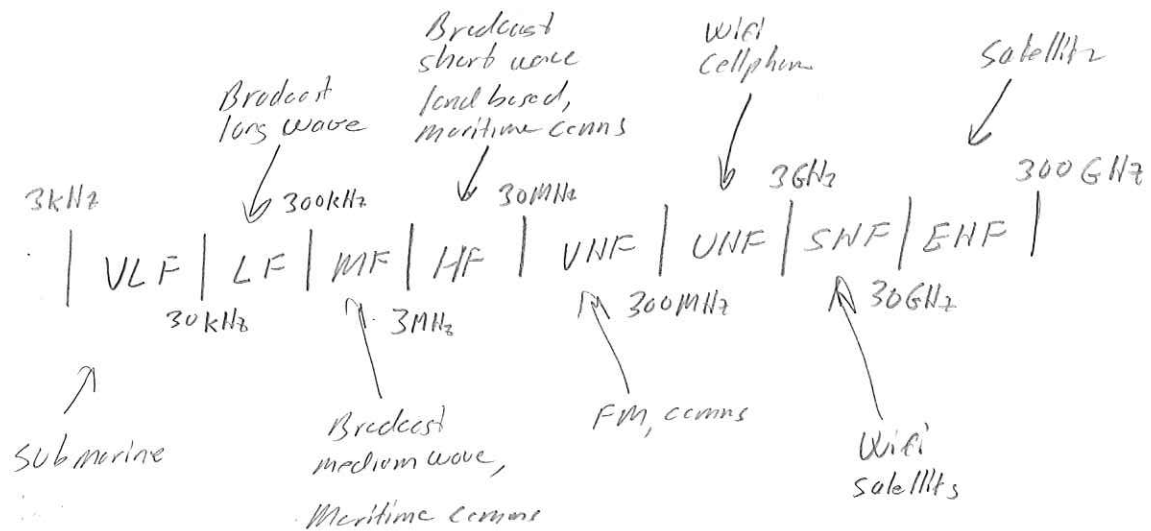 Bredcast
short wave
land based,
maritime comms
Wifi
Cellphone
Satellite
Brodcast
long wave
3kHz
300kHz
30MHz
3GHz
300GHz
VLF | LF | MF | HF | VHF | UHF | SHF | EHF
30kHz
3MHz
300MHz
30GHz
Submarine
Bredcast
medium wave,
Maritime comms
FM, comms
Wifi
satellits